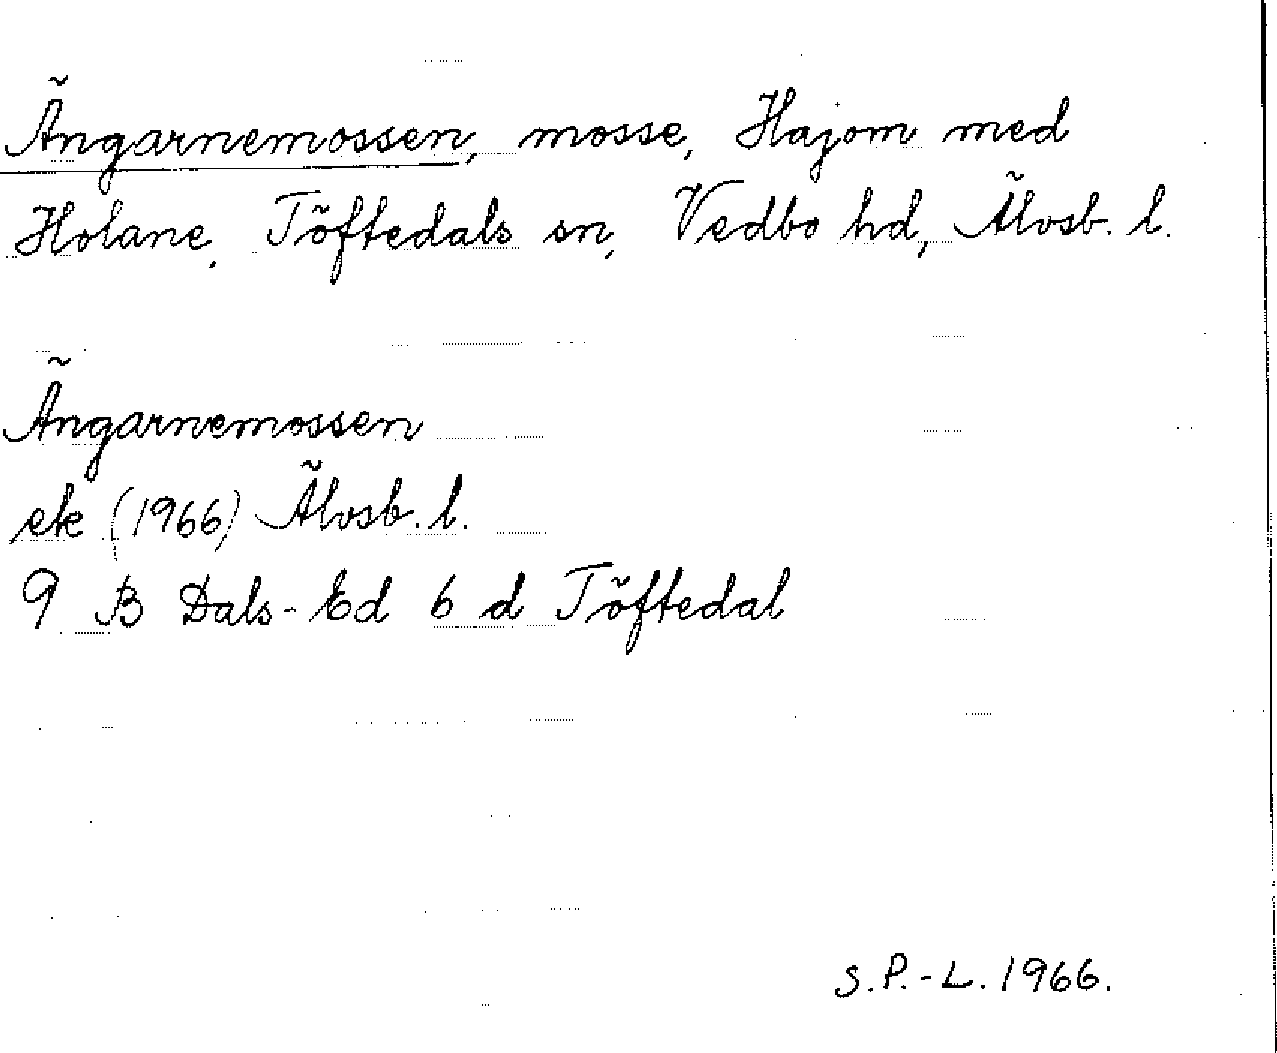 Ängarnemossen, mosse, Hajom med
Holane, Töftedals sn, Vedbo hd, Älvsb. l.
Ängarnemossen
ek (1966) Älvsb. l.
9 B Dals-Ed 6 d Töftedal
S.P.-L. 1966.